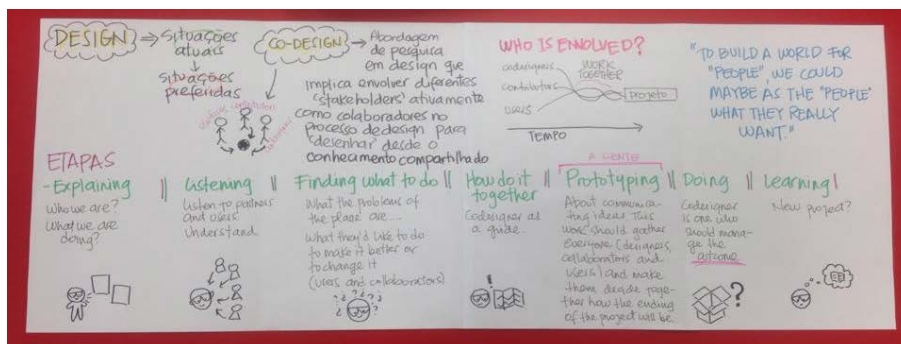 DESIGN
Situações
atuais
Situações
preferidas
CO-DESIGN
Abordagem
de pesquisa
em design que
implica envolver diferentes
'stakeholders' ativamente
como colaboradores no
processo de design para
'desenhar' desde o
conhecamento compartilhado
WHO IS ENVOLVED?
codesigners
contributors
users
WORK
TOGETHER
projeto
TEMPO
"TO BUILD A WORLD FOR
"PEOPLE", WE COULD
MAYBE AS THE "PEOPLE"
WHAT THEY REALLY
WANT."
ETAPAS
- Explaining
Who we are?
What we are
doing?
Listening
Listen to partners
and users
Understand
Finding what to do
What the problems of
the place are....
What they'd like to do
to make it better or
to change it
(users and collaborators)
How do it
together
Codesigner as
a guide...
A GENTE
Prototyping
About communica-
ting ideas. This
work should gather
everyone (designers,
collaborators and
users) and make
them decide toge-
ther how the ending
of the project will be
Doing
Codesigner
is one who
should mana-
ge the
outcome
Learning
New project?